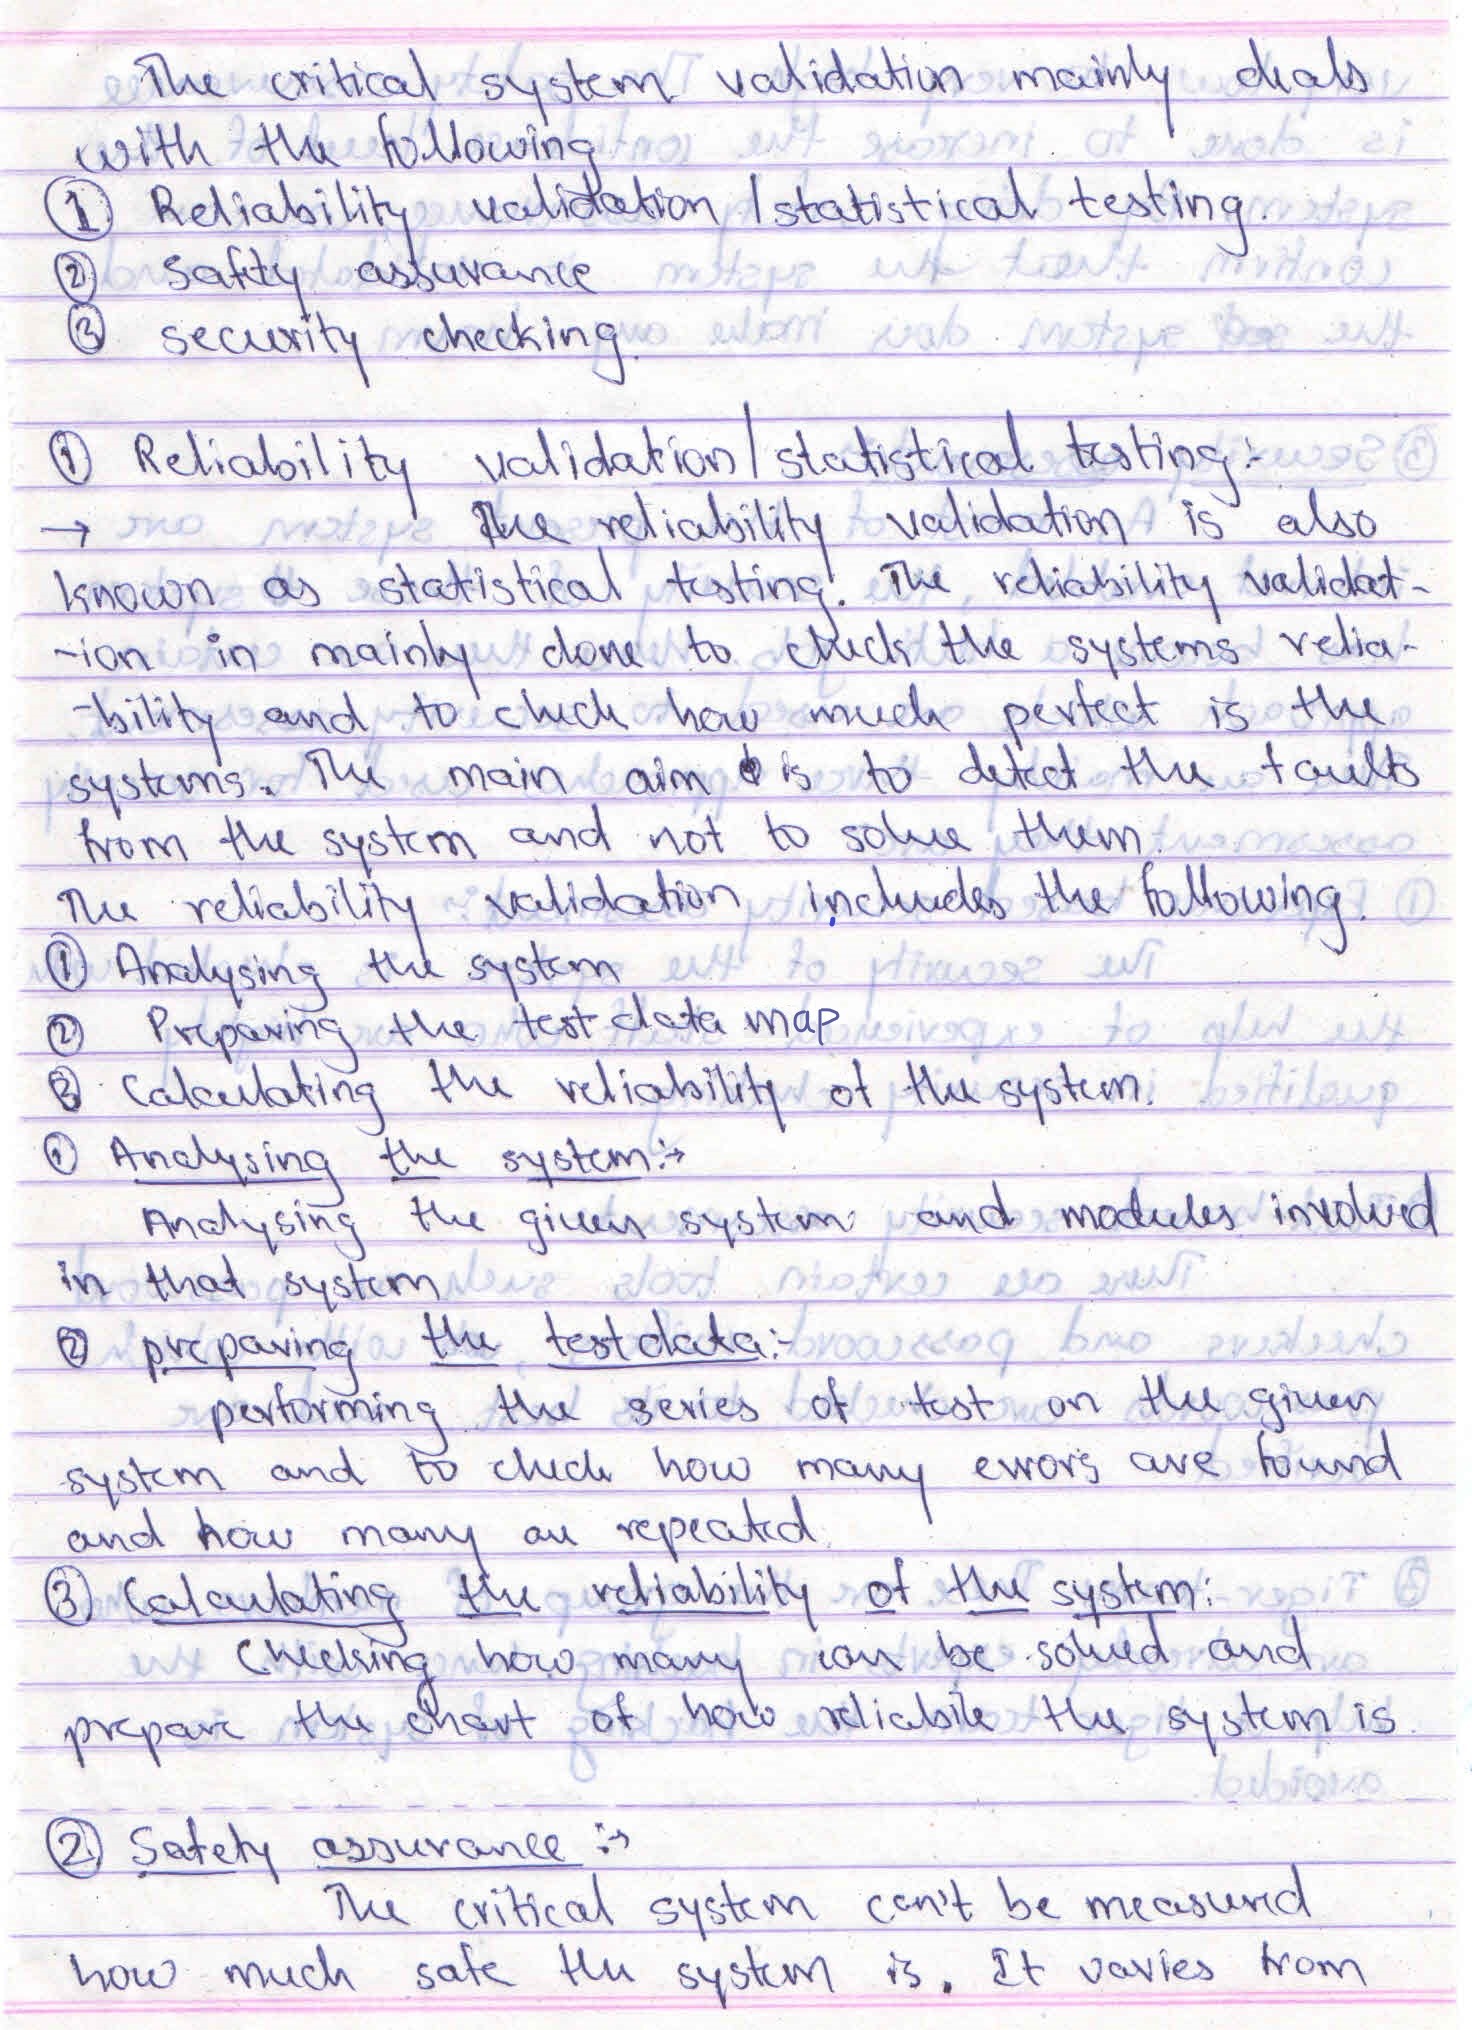 The critical system validation mainly deals
with the following
① Reliability validation / statistical testing.
② Safety assurance
③ security checking.
① Reliability validation/statistical testing:-
→ The reliability validation is also
known as statistical testing. The reliability validat-
-ion in mainly done to check the systems relia-
-bility and to check how much perfect is the
systems. The main aim is to detect the faults
from the system and not to solve them.
The reliability validation includes the following.
① Analysing the system
② Preparing the test data map
③ Calculating the reliability of the system.
① Analysing the system:→
Analysing the given system and modules involved
in that system
② preparing the testdata:-
performing the series of test on the given
system and to check how many errors are found
and how many are repeated.
③ Calculating the reliability of the system:
Checking how many can be solved and
prepare the chart of how reliable the system is.
② Safety assurance :→
The critical system can't be measured
how much safe the system is. It varies from